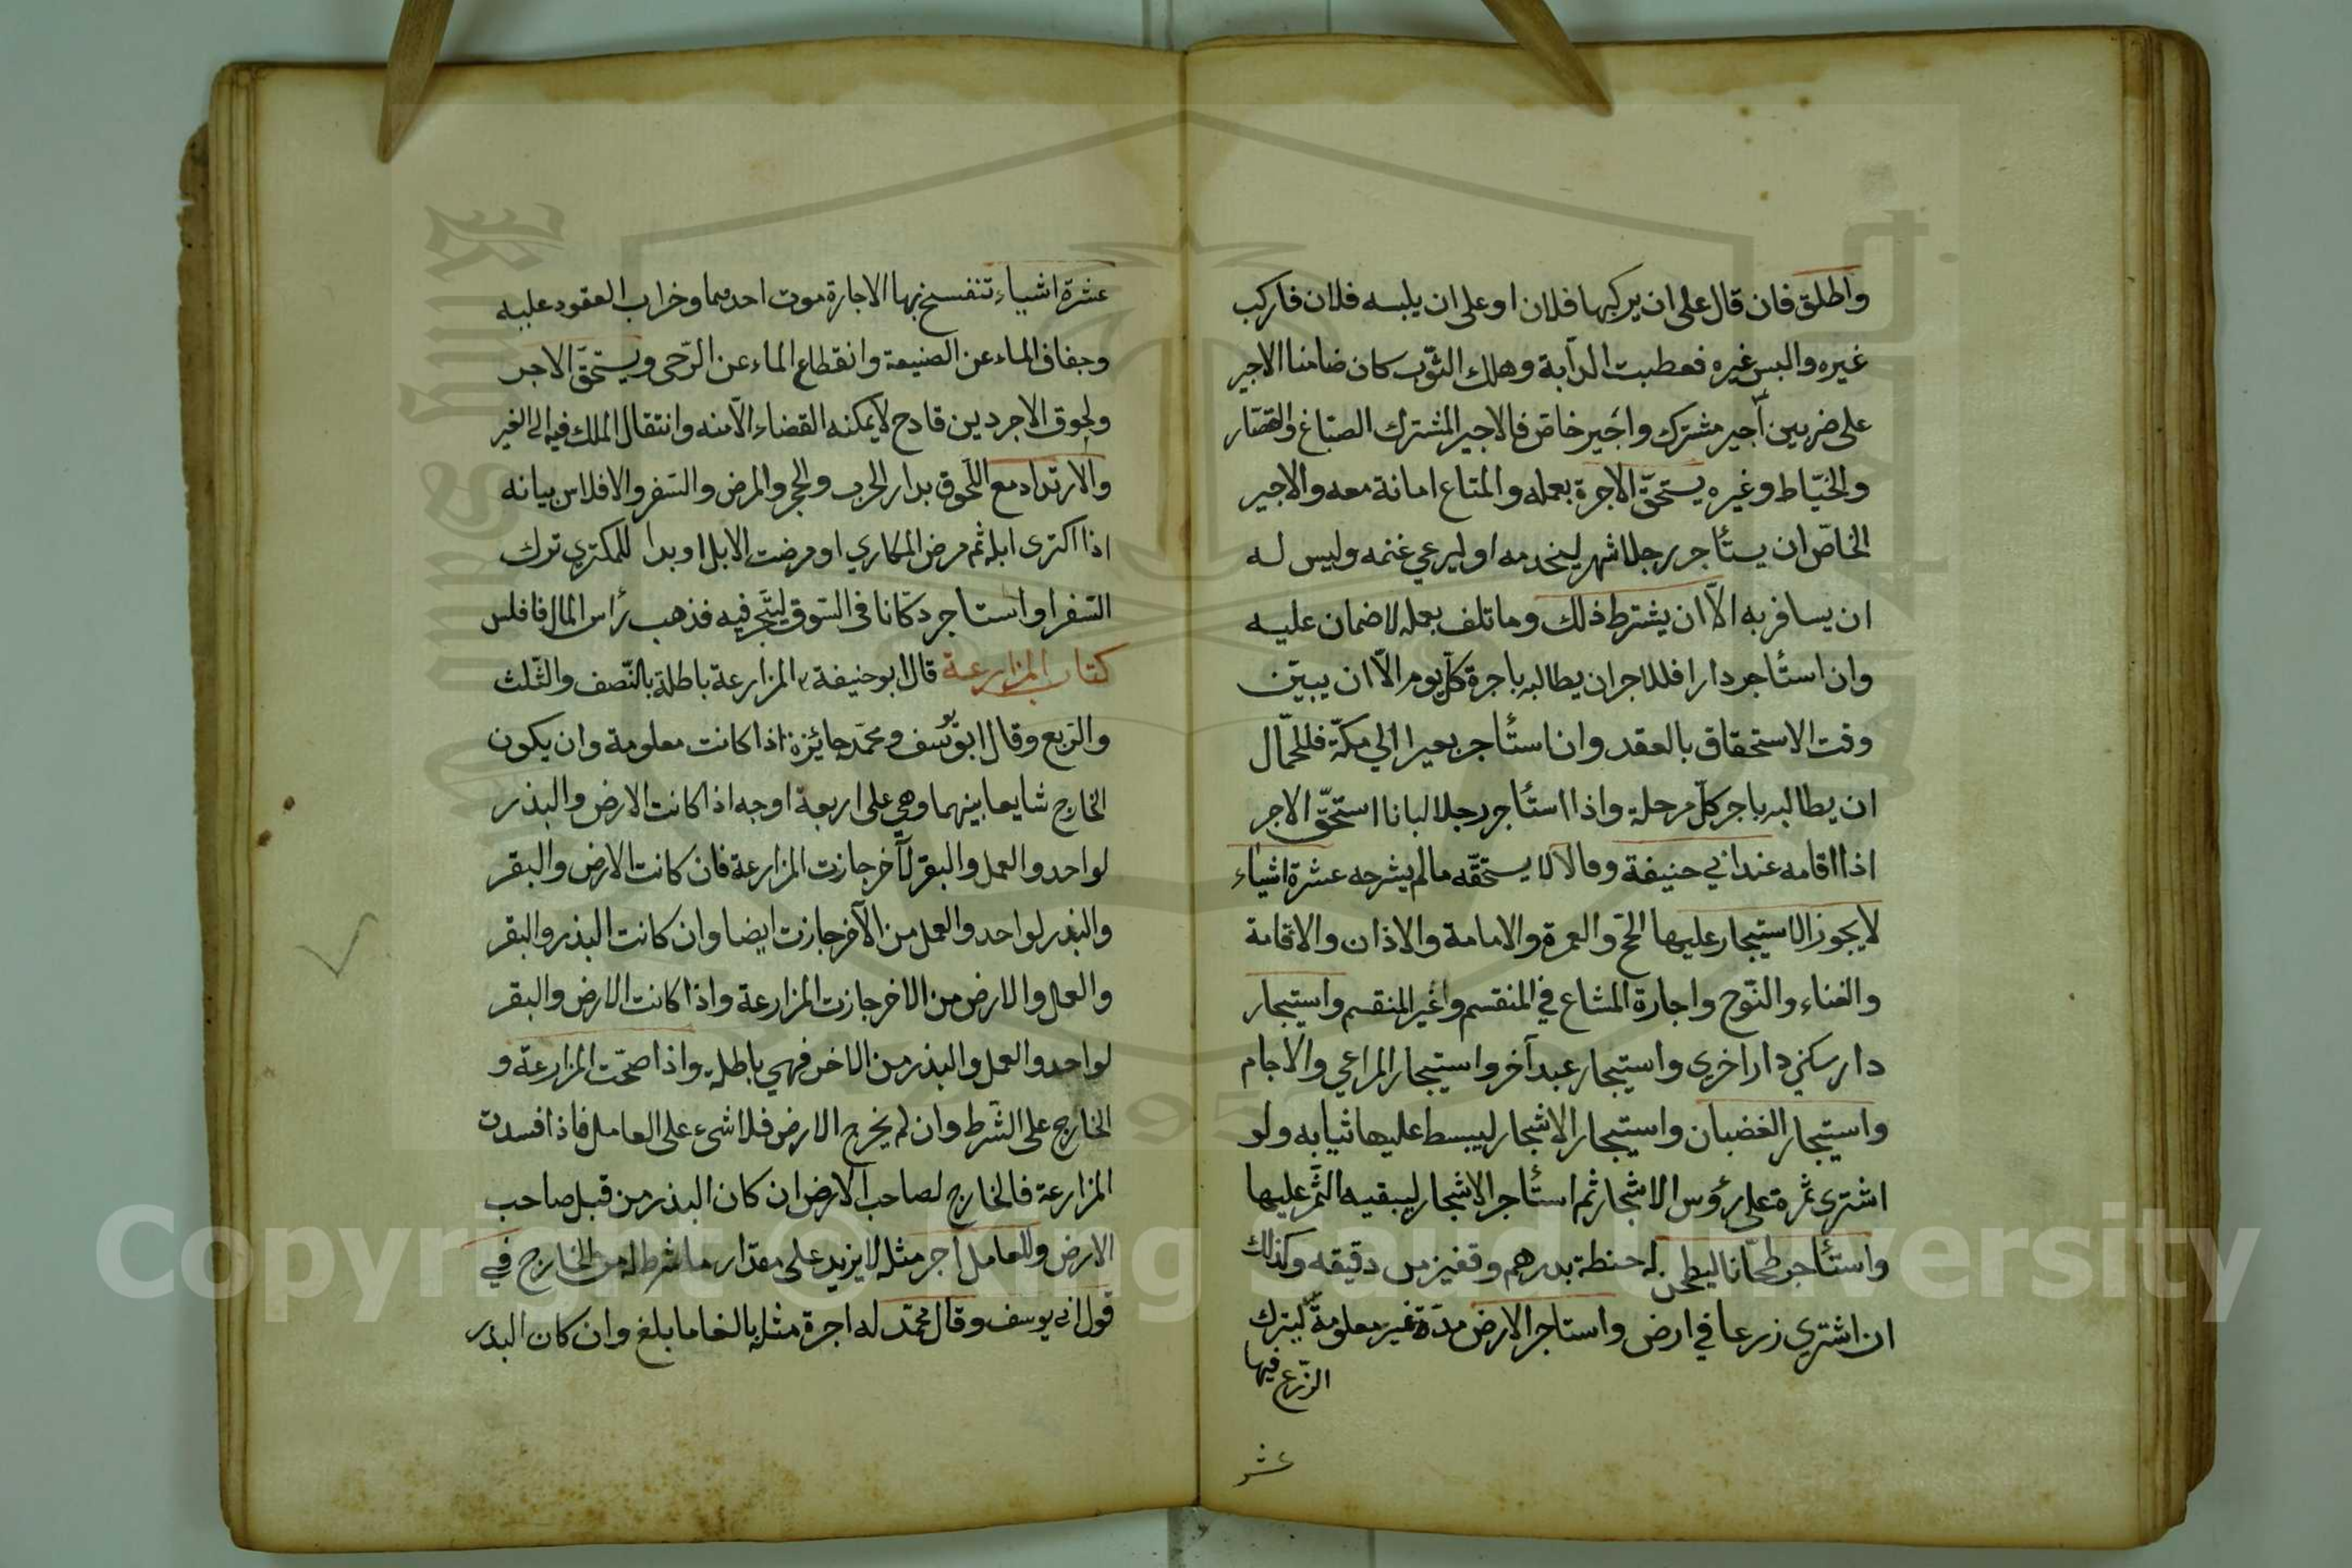 واطلق فان قال على ان يركبها فلان او على ان يلبسه فلان فاركب
غيره والبس غيره فعطبت الدّابة وهلك الثّوب كان ضامنا الاجير
على ضربين أجير مشترك واجير خاصّ فالاجير المشترك الصبّاغ والقصّار
والخيّاط وغيره يستحقّ الاجرة بعمله والمتاع امانة معه والاجير
الخاصّ ان يستأجر رجلا شهر ليخدمه او ليرعي غنمه وليس له
ان يسافر به الّا ان يشترط ذلك وما تلف بعمله لا ضمان عليه
وان استأجر دارا فللاجر ان يطالبه باجرة كلّ يوم الّا ان يبيّن
وقت الاستحقاق بالعقد وان استأجر بعيرا الي مكّة فللحمّال
ان يطالبه باجر كلّ مرحلة واذا استأجر رجلا لبانا استحقّ الاجر
اذا اقامه عند ابي حنيفة وقالا لا يستحقّه ما لم يشرجه عشرة اشياء
لا يجوز الاستيجار عليها الحجّ والعمرة والامامة والاذان والاقامة
والغناء والنّوح واجارة المشاع في المنقسم واغير المنقسم واستيجار
دار سكني دار اخري واستيجار عبد آخر واستيجار المراعي والاجام
واستيجار الغضبان واستيجار الاشجار ليبسط عليها ثيابه ولو
اشترى ثمرة على رؤس الاشجار ثم استأجر الاشجار ليبقيه الثّمر عليها
واستأجر طحّانا ليطحن له حنطة بدرهم وقفيز من دقيقه وكذلك
ان اشتري زرعا في ارض واستاجر الارض مدّة غير معلومة ليترك
الزّرع فيها
عشر
عشرة اشياء تنفسخ بها الاجارة موت احدهما وخراب العقود عليه
وجفاف الماء عن الصنيعة وانقطاع الماء عن الرّحى ويستحقّ الاجر
ولحوق الاجر دين قادح لا يمكنه القضاء الّا منه وانتقال الملك فيه الى الغير
والارتداد مع اللّحوق بدار الحرب والحجر والمرض والسّفر والافلاس بيانه
اذا اكترى ابله ثم مرض المكاري او مرضت الابل او بدا للمكتري ترك
السّفر او استاجر دكّانا فى السّوق ليتّجر فيه فذهب رأس المال فافلس
كتاب المزارعة قال ابو حنيفة المزارعة باطلة بالنّصف والثّلث
والرّبع وقال ابو يوسف ومحمّد جائزة اذا كانت معلومة وان يكون
الخارج شايعا بينهما وهي على اربعة اوجه اذا كانت الارض والبذر
لواحد والعمل والبقر لآخر جازت المزارعة فان كانت الارض والبقر
والبذر لواحد والعمل من الآخر جازت ايضا وان كانت البذر والبقر
والعمل والارض من الاخر جازت المزارعة واذا كانت الارض والبقر
لواحد والعمل والبذر من الاخر فهي باطلة واذا صحّت المزارعة و
الخارج على الشّرط وان لم يخرج الارض فلا شىء على العامل فاذا فسدت
المزارعة فالخارج لصاحب الارض ان كان البذر من قبل صاحب
الارض وللعامل اجر مثله لا يزيد على مقدار ما شرط له من الخارج في
قول ابى يوسف وقال محمّد له اجرة مثله بالغا ما بلغ وان كان البذر
Copyright © King Saud University